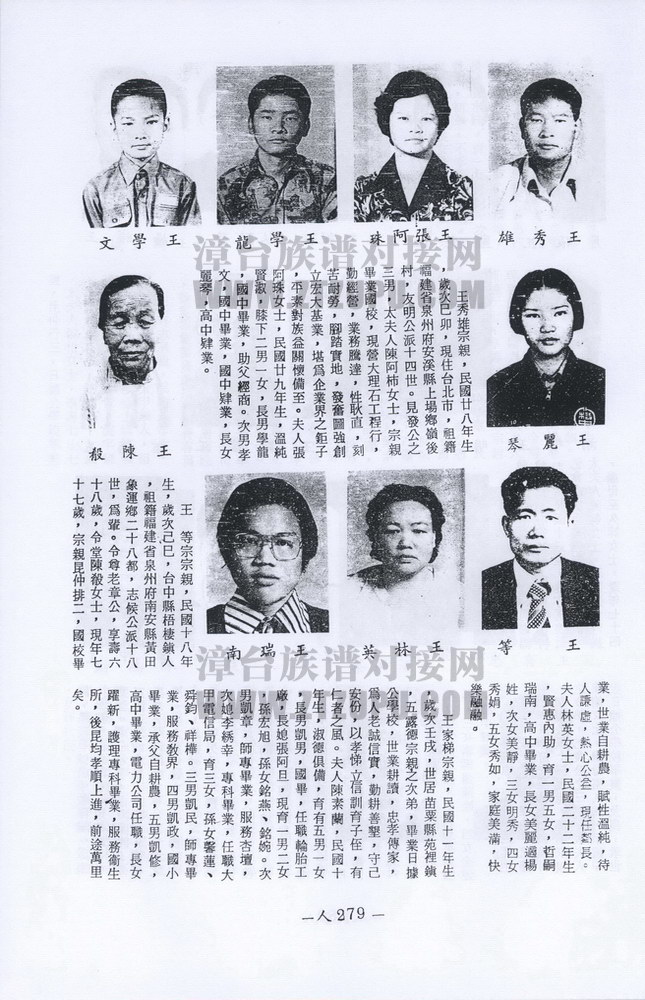 王秀雄
王張阿珠
王學龍
王學文
王麗琴
王陳殺
王秀雄宗親，民國廿八年生
，歲次巳卯，現住台北市，祖籍
福建省泉州府安溪縣上場鄉嶺後
村，友明公派十四世。見發公之
三男，太夫人陳阿柿女士，宗親
畢業國校，現營大理石工程行，
勤經營，業務騰達，性耿直，刻
苦耐勞，腳踏實地，發奮圖強創
立宏大基業，堪為企業界之鉅子
，平素對族益關懷備至。夫人張
阿珠女士，民國廿九年生，溫純
賢淑，膝下二男一女，長男學龍
，國中畢業，助父經商。次男孝
文，國中畢業，國中肄業，長女
麗琴，高中肄業。
王等
王林英
王瑞南
王　等宗親，民國十八年
生，歲次己巳，台中縣梧棲鎮人
，祖籍福建省泉州府南安縣黃田
象運鄉二十八都，志候公派十八
世，為輩。令尊老章公，享壽六
十八歲，令堂陳殺女士，現年七
十七歲，宗親昆仲排二，國校畢
業，世業自耕農，賦性溫純，待
人謙虛，熱心公益，現任鄰長。
夫人林英女士，民國二十二年生
，賢惠內助，育一男五女，哲嗣
瑞南，高中畢業，長女美麗適楊
姓，次女美靜，三女明秀，四女
秀娟，五女秀如，家庭美滿，快
樂融融。
王家梯宗親，民國十一年生
，歲次壬戌，世居苗栗縣苑裡鎮
，五露德宗親之次弟，畢業日據
公學校，世業耕讀，忠孝傳家，
為人老誠信實，勤耕善墾，守己
安份，以孝悌立信訓育子侄，有
仁者之風。夫人陳素蘭，民國十
年生，淑德俱備，育有五男一女
，長男凱男，國畢，任職輪胎工
廠，長媳張阿旦，現育一男二女
，孫宏旭，孫女銘燕、銘婉。次
男凱章，師專畢業，服務杏壇，
次媳李綉幸，專科畢業，任職大
甲電信局，育三女，孫女馨蓮、
舜鈞、祥樺。三男凱民，師專畢
業，服務敎界，四男凱政，國小
畢業，承父自耕農，五男凱修，
高中畢業，電力公司任職，長女
躍新，護理專科畢業，服務衞生
所，後昆均孝順上進，前途萬里
矣。
—人279—
漳台族谱对接网
漳台族谱对接网